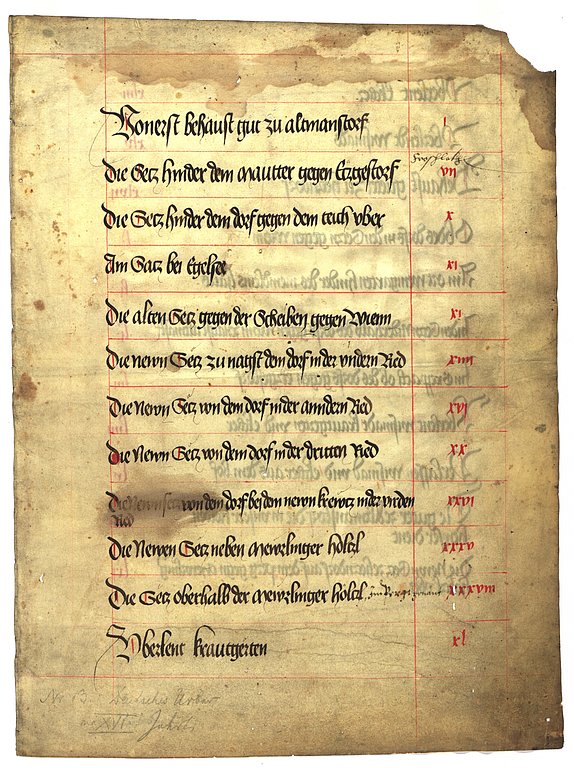 Vonerst behaust gut zu altmanstorf I
Die Setz hinder dem mautter gegen Etzgestorf VII
Die Setz hinder dem dorf gegen dem teich vber X
Am Satz bei Egelsee XI
Die alten Setz gegen der Scheiben gegen Wienn XI
Die newn Setz zu nagst dem dorf in der vndern Ried XIIII
Die Newn Setz von dem dorf in der anndern Ried XVI
Die Newn Setz von dem dorf in der dritten Ried XX
Die Newn setz von dem dorf bei den newn krewtz in der vnden XXVI
Ried
Die Newen Setz neben Mewrlinger höltzl XXXV
Die Setz oberhalb der Mewrlinger höltzl XXXVIII
Vberlent krautgerten XL
Nr 13 Deutsches Urbar
XVI Jahrh